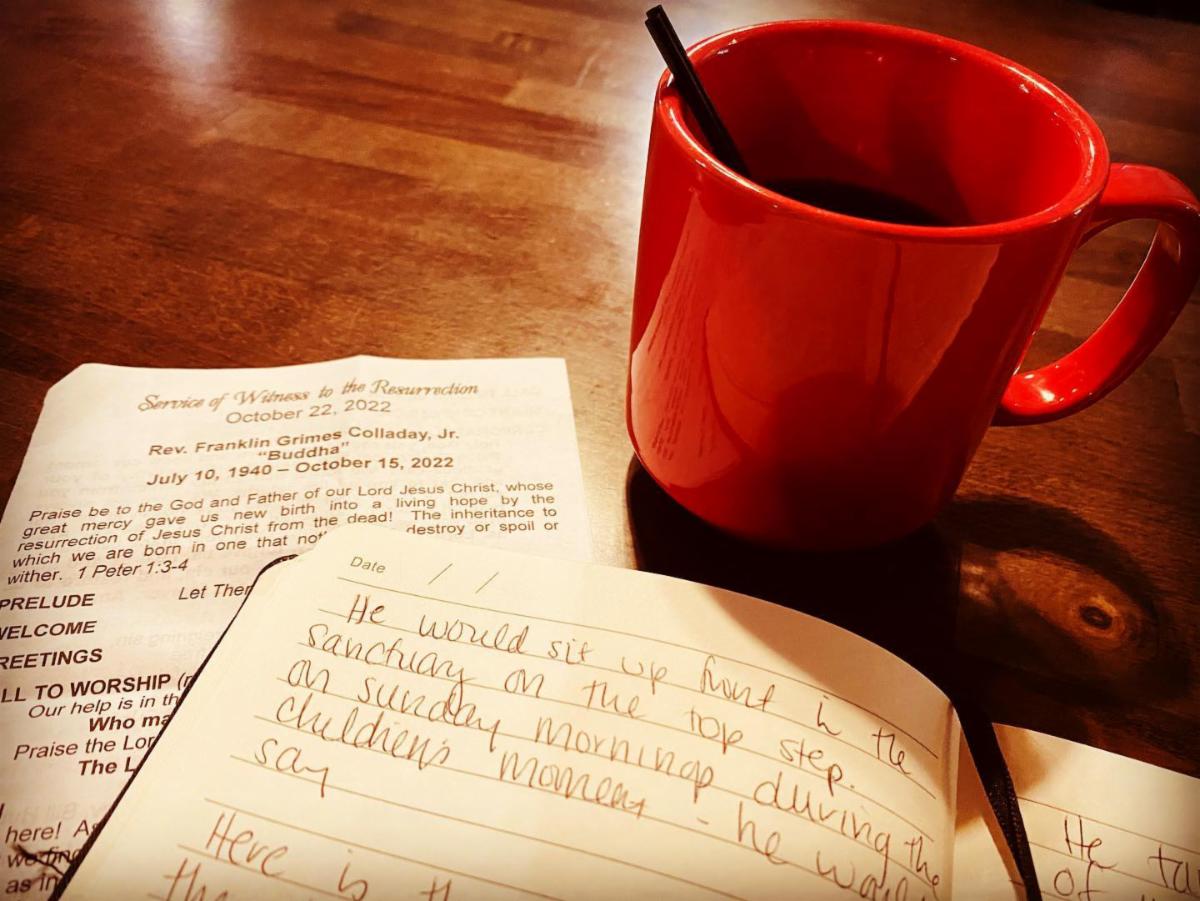 Service of Witness to the Resurrection
October 22, 2022
Rev. Franklin Grimes Colladay, Jr.
"Buddha"
July 10, 1940 – October 15, 2022
Praise be to the God and Father of our Lord Jesus Christ, whose
great mercy gave us new birth into a living hope by the
resurrection of Jesus Christ from the dead! The inheritance to
which we are born in one that destroy or spoil or
wither. 1 Peter 1:3-4
PRELUDE Let
WELCOME
GREETINGS
TO WORSHIP
Our help is in
Who
Praise the
The
here!
as
Date / /
He would sit up front in the
sanctuary on the top step.
on sunday mornings during the
children's moment - he would
say
Here is
He
of